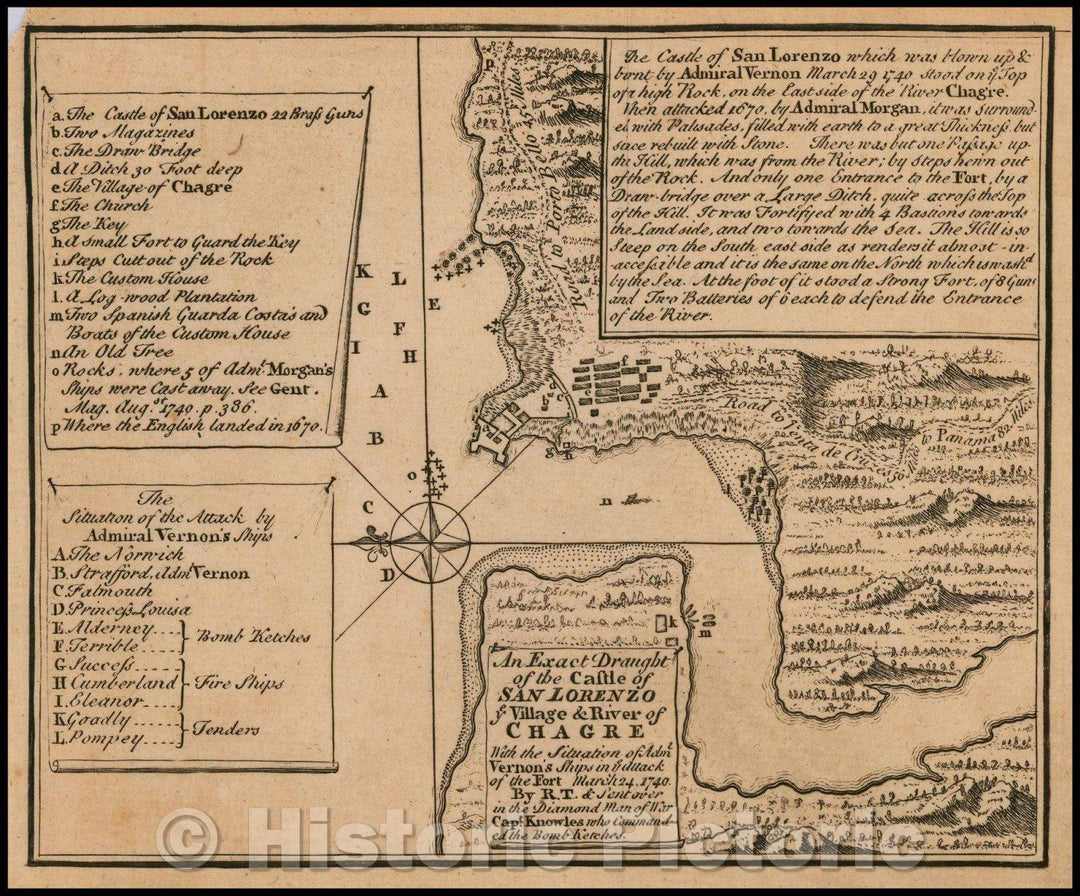 a. The Castle of San Lorenzo 22 Brass Guns
b. Two Magazines
c. The Draw Bridge
d A Ditch 30 Foot deep
e. The Village of Chagre
f. The Church
g The Key
h. A small Fort to Guard the Key
i. Steps Cutt out of the Rock
k. The Custom House
l. A Log-wood Plantation
m Two Spanish Guarda Costa's and
Boats of the Custom House
n An Old Tree
o Rocks, where 5 of Admˡ Morgan's
Ships were Cast away. See Gent.
Mag. Augˢᵗ 1740. p. 386.
p Where the English landed in 1670.
The Castle of San Lorenzo which was blown up &
burnt by Admiral Vernon March 29 1740 stood on yᵉ Top
of a high Rock, on the East side of the River Chagre.
When attacked 1670, by Admiral Morgan, it was Surround-
ed with Palisades, filled with earth to a great Thickness but
since rebuilt with Stone. There was but one Passage up
the Hill, which was from the River; by steps hewn out
of the Rock. And only one Entrance to the Fort, by a
Draw-bridge over a Large Ditch, quite across the Top
of the Hill. It was Fortifyed with 4 Bastions towards
the Land side, and two towards the Sea. The Hill is so
Steep on the South east side as renders it almost -in-
-accessible and it is the same on the North which is wash'd
by the Sea. At the foot of it stood a Strong Fort, of 8 Guns
and Two Batteries of 6 each to defend the Entrance
of the River.
p
Road to Porto Bello 45 Miles
K
L
G
E
F
I
H
A
B
C
D
o
f
e
d
c
b
a
i
g
h
n
l
Road to Venta de Cruces 50 Miles
to Panama 82 Miles
k
m
The
Situation of the Attack by
Admiral Vernon's Ships
A. The Norwich
B. Strafford, Admˡ Vernon
C. Falmouth
D. Princess Louisa
E. Alderney
F. Terrible
Bomb Ketches
G Success
H Cumberland
I. Eleanor
Fire Ships
K Goadly
L. Pompey
Tenders
An Exact Draught
of the Castle of
SAN LORENZO
yᵉ Village & River of
CHAGRE
With the Situation of Admˡ
Vernon's Ships in yᵉ Attack
of the Fort March 24. 1740.
By R.T. & Sent over
in the Diamond Man of War
Capᵗ Knowles who Command-
ed the Bomb Ketches.
© Historic Pictoric